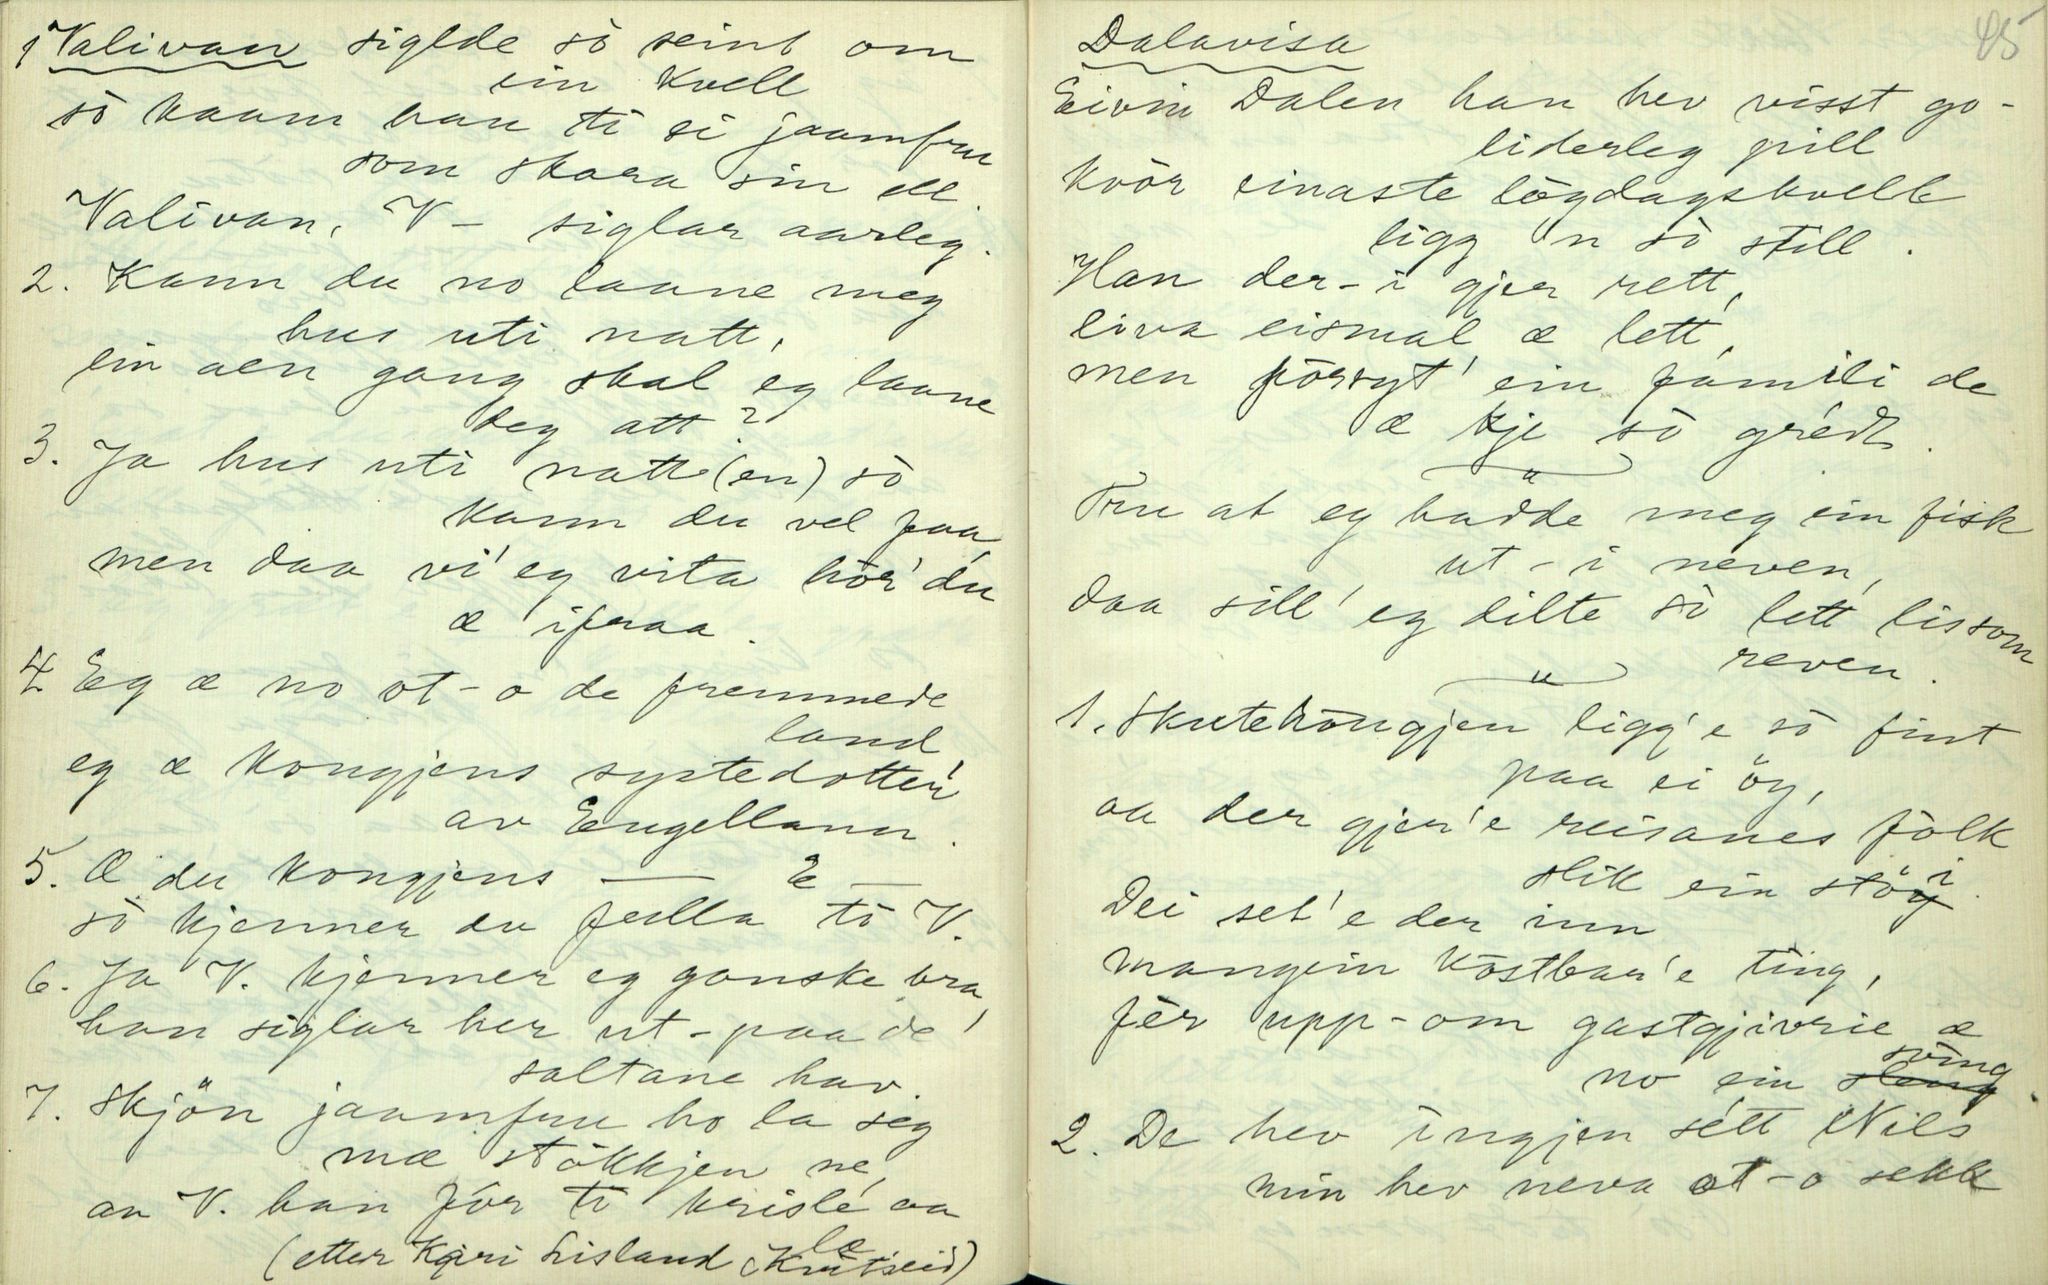 1 Valivan siglde sò seint om
ein kvell
sò kaam han ti ei jaamfru
som skara sin ell.
Valivan, V – siglar aarleg.
2. Kann du no laane meg
hus uti natt,
ein aen gang skal eg laane
deg att?
3. Ja hus uti natt(en) sò
kann du vel faa,
men daa vi' eg vita hòr' du
æ ifraa.
4 Eg æ no ot-o de fremmede
land
eg æ kongjens systedotter'
av Engelland.
5. Æ du kongjens — E —
sò kjenner du fulla ti V.
6. Ja V. kjenner eg ganske bra,
han siglar her ut-paa de'
saltane hav.
7. Skjön jaamfru ho la seg
mæ stökkjen ne,
an V. han fór ti krislé aa
le
(etter Kari Lisland, Krutseid)
45
Dalavisa
Eivin Dalen han hev visst go-
liderleg pill
kvòr einaste lògdagskvell
ligg 'n sò still.
Han der-i gjer rett,
liva eismal æ lett,
men fòrsyt' ein famili de
æ kje sò grédt.
"
Tru at eg hadde meg ein fisk
ut-i neven,
daa sill' eg dilte sò lett lissom
reven.
"
1. Skutekòngjen ligg'e sò fint
paa ei öy,
aa der gjer'e reisanes fòlk
slik ein stöi.
Dei set'e der inn
mangein kòstbar'e ting,
fèr upp-om gastgjivrie æ
no ein sving.
2. De hev ingjen sétt Nils
min hev neva ot-o sekk